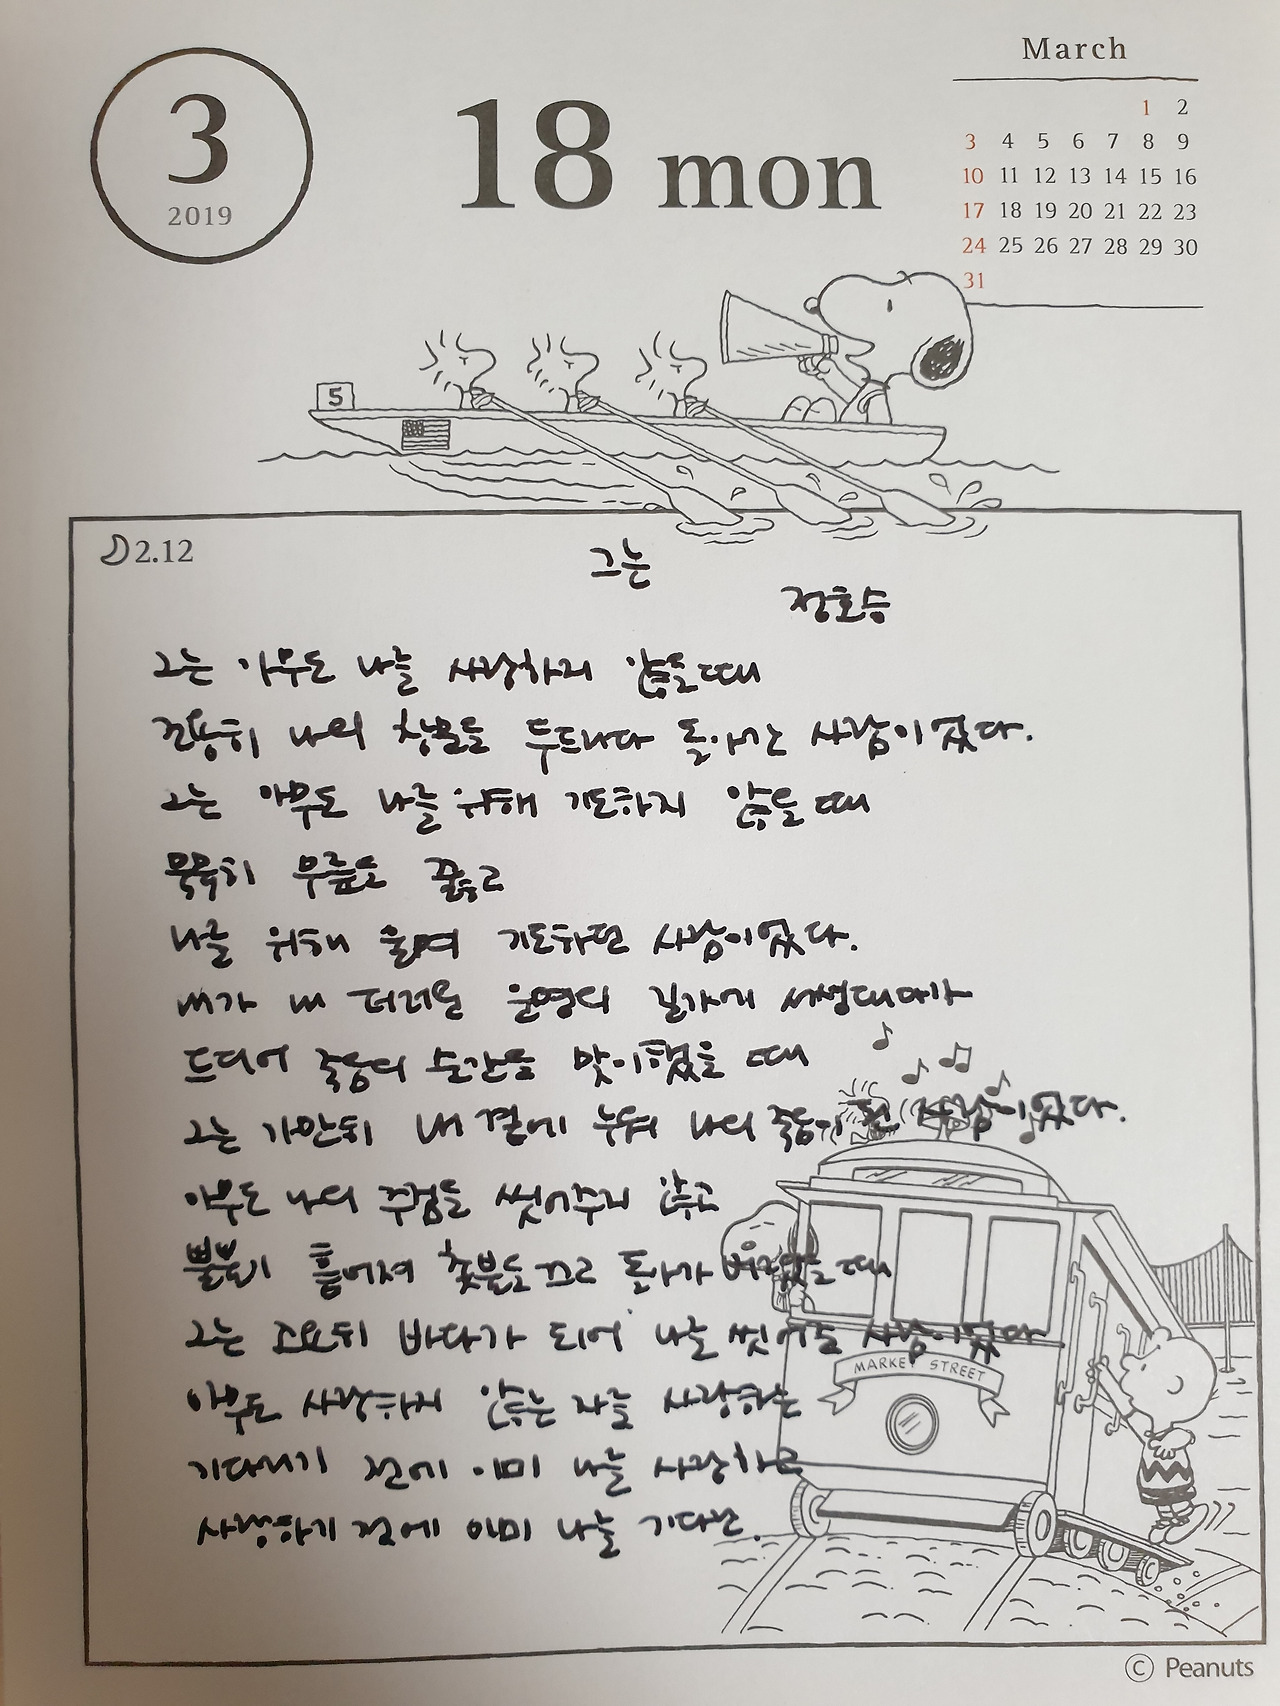 March
3
2019
18 mon
1 2
3 4 5 6 7 8 9
10 11 12 13 14 15 16
17 18 19 20 21 22 23
24 25 26 27 28 29 30
31
5
2.12
그는
정호승
그는 아무도 나를 사랑하지 않을 때
조용히 나의 창문을 두드리다 돌아간 사람이었다.
그는 아무도 나를 위해 기도하지 않을 때
묵묵히 무릎을 꿇고
나를 위해 울며 기도하던 사람이었다.
내가 내 더러운 운명의 길가에 서성대다가
드디어 죽음의 순간을 맞이했을 때
그는 가만히 내 곁에 누워 나의 죽음이 된 사람이었다.
아무도 나의 주검을 씻어주지 않고
뿔뿔이 흩어져 촛불을 끄고 돌아가 버렸을 때
그는 고요히 바다가 되어 나를 씻어준 사람이었다
아무도 사랑하지 않는 자를 사랑하는
기다리기 전에 이미 나를 사랑하고
사랑하기 전에 이미 나를 기다린.
MARKET STREET
© Peanuts